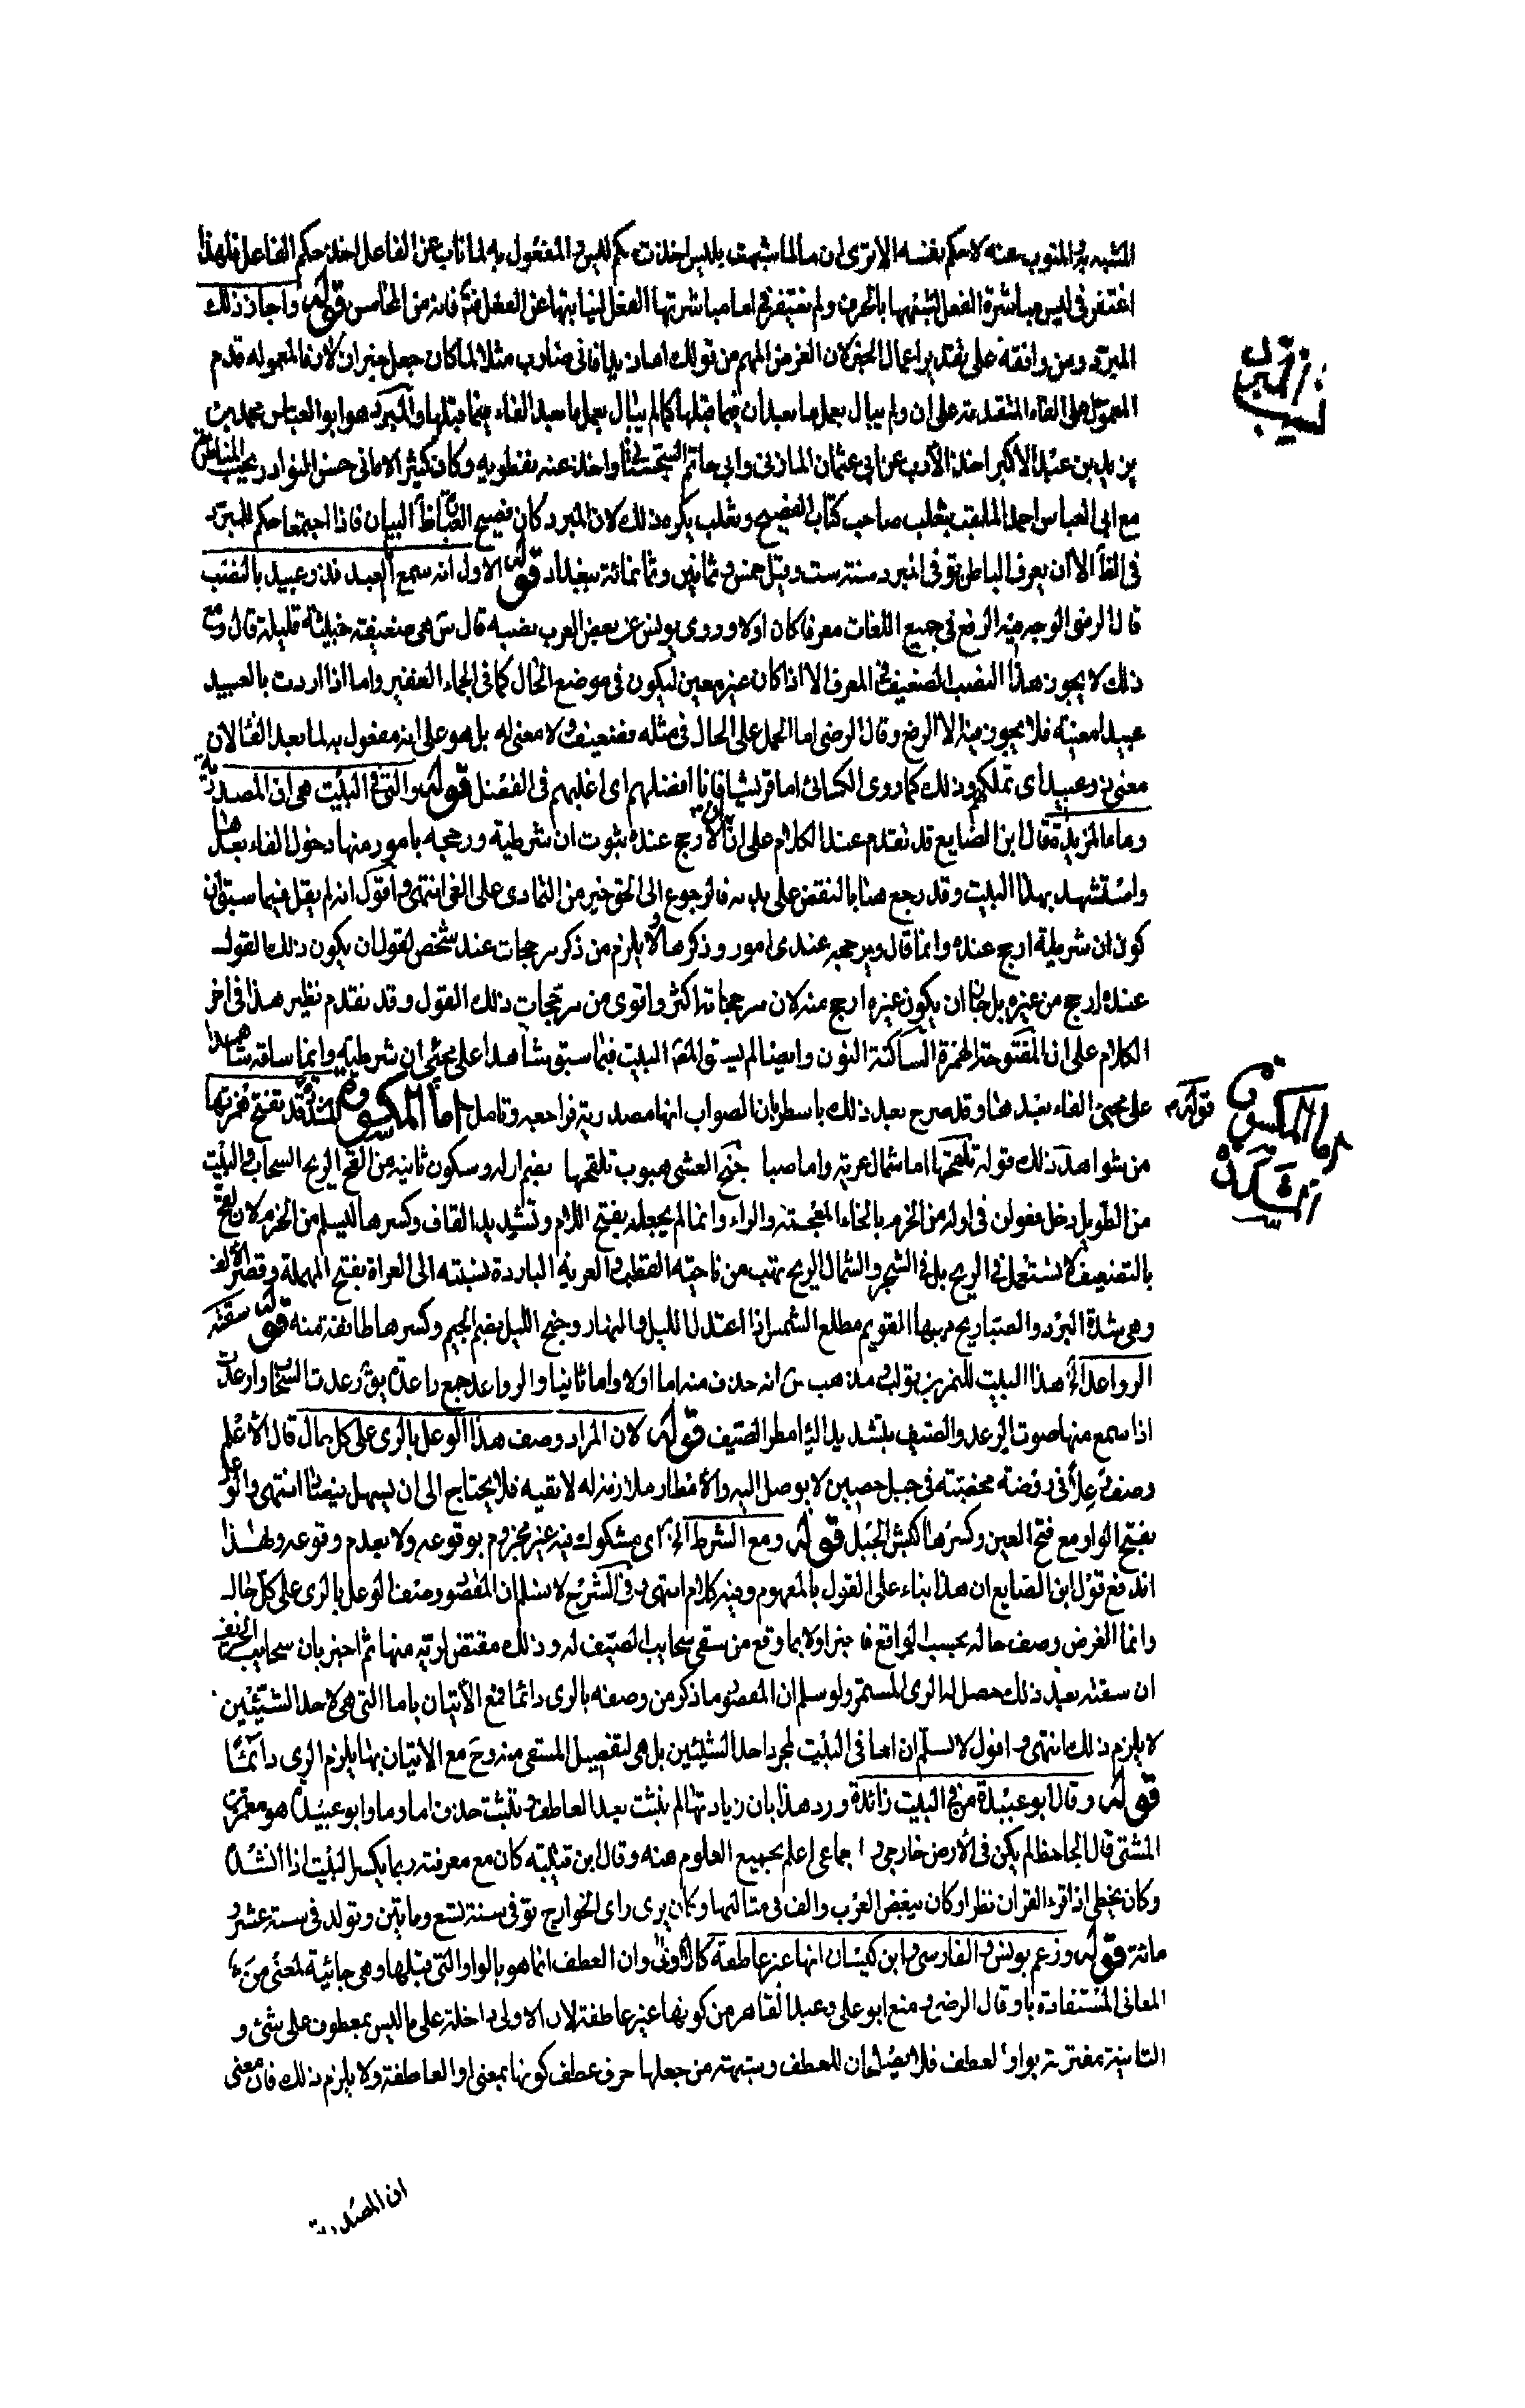 المشبه به المنوب عنه لا حكم نفسه الا ترى ان ما لما شبهت بليس اخذت حكم ليس والمفعول به لما ناب عن الفاعل اخذ حكم الفاعل فلهذا
اغتفر في ليس مباشرة الفعل لشبهها بالحرف ولم يغتفر في اما مباشرتها الفعل لنيابتها عن الفعل فانه من الخامس قوله واجاز ذلك
المبرد ومن وافقه على تقدير اعمال الخبر لان الغرض المهم من قولك اما زيدا فاني ضارب مثلا لما كان جعل خبر ان لازما لمعموله قدم
المعمول على الفاء المتقدمة على ان ولم يبال بعمل ما بعد ان فيما قبلها كما لم يبال بعمل ما بعد الفاء فيما قبلها والمبرد هو ابو العباس محمد بن
يزيد بن عبد الاكبر اخذ الأدب عن ابي عثمان المازني وابي حاتم السجستاني واخذ عنه نفطويه وكان كثير الامالي حسن النوادر يحب المناظرة
مع ابي العباس احمد الملقب بثعلب صاحب كتاب الفصيح وثعلب يكره ذلك لان المبرد كان فصيح العبارة ظاهر البيان فاذا اجتمعا حكم للمبرد
في الظاهر الا ان يعرف الباطن توفي المبرد سنة ست وقيل خمس وثمانين وثمانمائة ببغداد قوله الاول انه سمع اما العبيد فذو عبيد بالنصب
قال الرضي الوجه فيه الرفع في جميع اللغات معرفا كان اولا وروى يونس عن بعض العرب نصبه قال س هي ضعيفة خبيثة قليلة قال ومع
ذلك لا يجوز هذا النصب الضعيف في المعرف الا اذا كان غير معين ليكون في موضع الحال كما في الجماء الغفير واما اذا اردت بالعبيد
عبيدا معينة فلا يجوز فيه الا الرفع وقال الرضي اما الحمل على الحال في مثله فضعيف ولا معنى له بل هو على انه مفعول به لما بعد الفا لان
معنى ذو عبيد اي تملكهم وذلك كما روى الكسائي اما قريشا فانا افضلهم اي اغلبهم في الفضل قوله والتي في البيت هي ان المصدرية
وما المزيدة قال ابن الضايع قد تقدم عند الكلام على ان ان الارجح عنده ثبوت ان شرطية ورجحه بامور منها دخول الفاء بعدها
واستشهد بهذا البيت وقد رجع هنا بالنقض على يديه فالرجوع الى الحق خير من التمادي على الغي انتهى واقول انه لم يقل فيما سبق ان
كون ان شرطية ارجح عنده وانما قال ويرجحه عندي امور وذكرها ولا يلزم من ذكر مرجحات عند شخص لقول ان يكون ذلك القول
عنده ارجح من غيره بل جاز ان يكون غيره ارجح منه لان مرجحاته اكثر واقوى من مرجحات ذلك القول وقد تقدم نظير هذا في اخر
الكلام على ان المفتوحة الهمزة الساكنة النون وايضا لم يسق المص البيت فيما سبق شاهدا على مجئ ان شرطية وانما ساقه شاهدا
على مجئ الفاء بعد هنا وقد صرح بعد ذلك باسطر بان الصواب انها مصدرية فراجعه وتامل اما المكسورة المشددة قوله قد تفتح همزتها
من شواهد ذلك قوله تلقحها اما شمال عرية واما صبا جنح العشي هبوب تلقحها بضم اوله وسكون ثانيه من القح الريح السحاب والبيت
من الطويل دخل فعولن في اوله من الخرم بالخاء المعجمة والراء وانما لم يجعله بفتح اللام وتشديد القاف وكسرها ليسلم من الخرم لان لقح
بالتضعيف لا يستعمل في الريح بل في الشجر والشمال الريح تهب من ناحية القطب والعرية الباردة نسبته الى العراة بفتح المهملة وقصر الالف
وهي شدة البرد والصبا ريح مهبها القويم مطلع الشمس اذا اعتدل الليل والنهار وجنح الليل بضم الجيم وكسرها طائفة منه قوله سقته
الرواعد الخ هذا البيت للنمر بن تولب ومذهب س انه حذف منه اما اولا واما ثانيا والرواعد جمع راعدة يق رعدت السحاب وارعدت
اذا سمع منها صوت الرعد والصيف بتشديد الياء مطر الصيف قوله لان المراد وصف هذا الوعل بالري على كل حال قال الاعلم
وصف وعلا في روضة مخصبة في جبل حصين لا يوصل اليه والامطار ملازمة له لا تغبه فلا يحتاج الى ان يسهل فيصاد انتهى والوعل
بفتح الواو مع فتح العين وكسرها الكبش الجبلي قوله ومع الشرط الخ اي مشكوك فيه غير مجزوم بوقوعه ولا بعدم وقوعه ولهذا
اندفع قول ابن الضايع ان هذا بناء على القول بالمفهوم وفيه كلام انتهى وفي الشرح لا نسلم ان المقصود وصف الوعل بالري على كل حال
وانما الغرض وصف حاله بحسب الواقع فاخبر اولا بما وقع من سقي سحايب الصيف له وذلك مقتض لريه منها ثم اخبر بان سحايب الخريف
ان سقته بعد ذلك حصل له الري المستمر ولو سلم ان المقصود ما ذكر من وصفه بالري دائما فمع الأتيان باما التي هي لاحد الشيئين
لا يلزم ذلك انتهى واقول لا نسلم ان اما في البيت لمجرد احد الشيئين بل هي لتفصيل المستقى منه وح مع الاتيان بها يلزم الري دائما
قوله وقال ابو عبيدة من في البيت زائدة ورد هذا بان زيادتها لم تثبت بعد العاطف وتثبت حذف اما وما وابو عبيدة هو معمر بن
المثنى قال الجاحظ لم يكن في الأرض خارجي ولا جماعي اعلم بجميع العلوم منه وقال ابن قتيبة كان مع معرفته ربما يكسر البيت اذا انشده
وكان يخطي اذا قرء القران نظرا وكان يبغض العرب والف في مثالبها وكان يرى راي الخوارج توفي سنة تسع ومايتين وتولد في سنة عشر و
مائة قوله وزعم يونس والفارسي وابن كيسان انها غير عاطفة كالاولى وان العطف انما هو بالواو التي قبلها وهي جائية لمعنى من
المعاني المستفادة باو وقال الرضي ومنع ابو علي وعبد القاهر من كونها غير عاطفة لان الاولى داخلة على ما ليس بمعطوف على شئ و
الثانية مقترنة بواو العطف فلا يصلحان للعطف وشبهته من جعلها حرف عطف كونها بمعنى او العاطفة ولا يلزم ذلك فان معنى
ان المصدرية